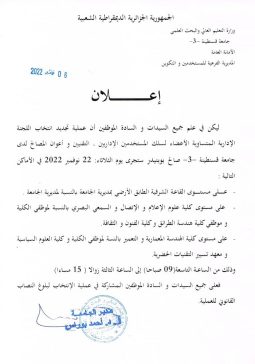 الجمهورية الجزائرية الديمقراطية الشعبية
وزارة التعليم العالي والبحث العلمي
جامعة قسنطينة -3-
الأمانة العامة
المديرية الفرعية للمستخدمين و التكوين
06 2022
إعــــلان
ليكن في علم جميع السيدات و السادة الموظفين أن عملية تجديد انتخاب اللجنة
الإدارية المتساوية الأعضاء لسلك المستخدمين الإداريين، التقنيين و أعوان المصالح لدى
جامعة قسنطينة -3- صالح بوبنيدر ستجرى يوم الثلاثاء: 22 نوفمبر 2022 في الأماكن
- على مستوى القاعة الشرفية الطابق الأرضي بمديرية الجامعة بالنسبة لمديرية الجامعة.
- على مستوى كلية علوم الإعلام و الإتصال و السمعي البصري بالنسبة لموظفي الكلية
و موظفي كلية هندسة الطرائق و كلية الفنون و الثقافة.
- على مستوى كلية الهندسة المعمارية و التعمير بالنسبة لموظفي الكلية و كلية العلوم السياسية
و معهد تسيير التقنيات الحضرية.
وذلك من الساعة التاسعة (09 صباحا) إلى الساعة الثالثة زوالا (15 مساء)
فعلى جميع السيدات و السادة الموظفين المشاركة في عملية الإنتخاب لبلوغ النصاب
القانوني للعملية.
مدير الجامعة
أ.د. أحمد بوراس